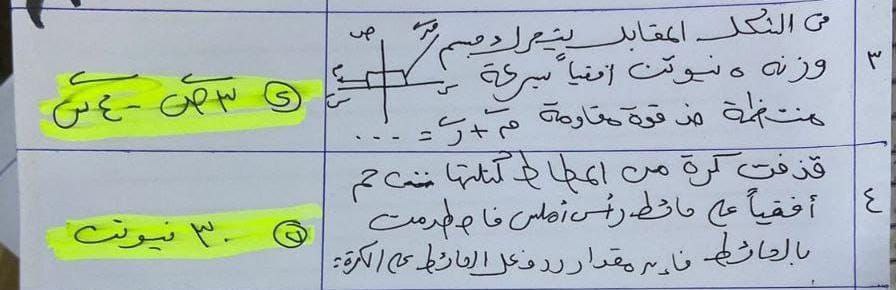 ٣
فى الشكل المقابل يتحرك جسم
وزنه ٥ نيوتن أفقياً بسرعة
منتظمة ضد قوة مقاومة م + ر = ...
ص
س
م
٣ ص - ٤ س
٤
قذفت كرة من المطاط كتلتها جم
أفقياً على حائط رأسى أملس فاصطدمت
بالحائط فإن مقدار رد فعل الحائط على الكرة =
٣٠ نيوتن